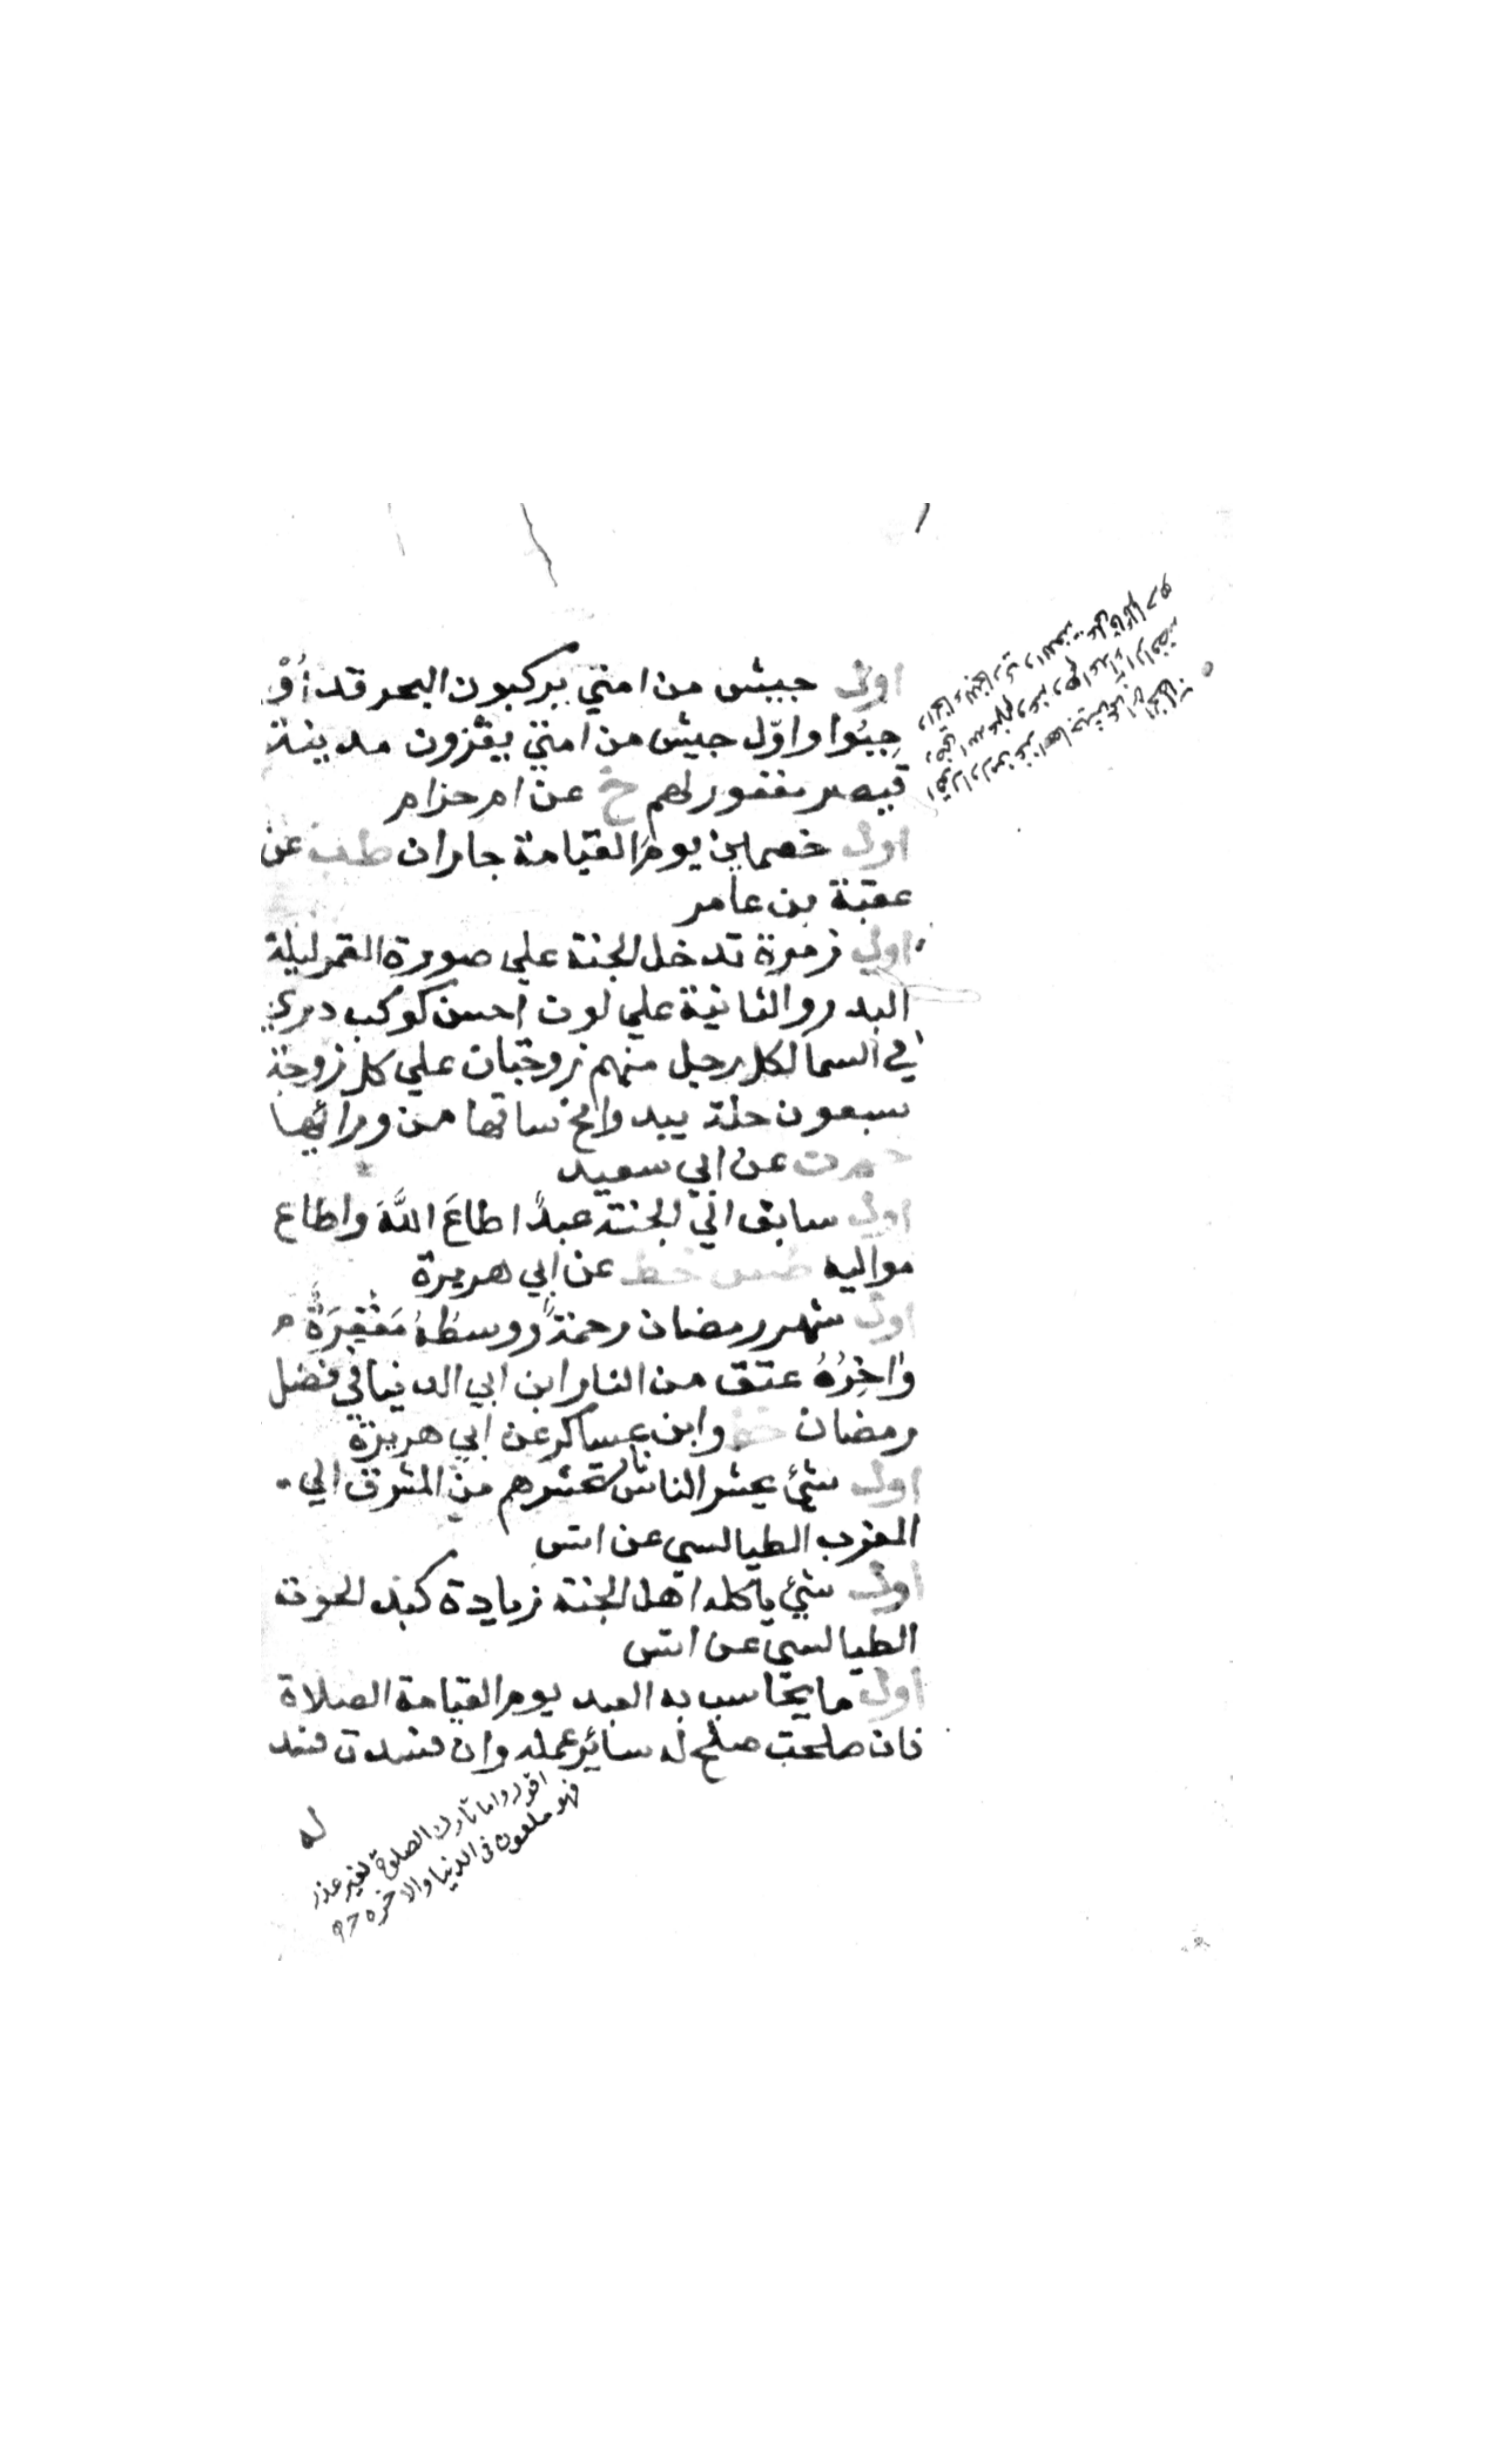 اول جيش من امتي يركبون البحر قد اُوْ
جِبُوا واوّل جيش من امتي يغزون مدينة
قيصر مغفور لهم خ عن ام حزام
اول خصمين يوم القيامة جاران طب عن
عقبة بن عامر
اول زمرة تدخل الجنة علي صورة القمر ليلة
البدر والثانية علي لون احسن كوكب دري
في السما لكل رجل منهم زوجتان علي كل زوجة
سبعون حلة يبدوا مخ ساقها من ورائها
حم ت عن ابي سعيد
اول سابق الي الجنة عبدٌ اطاعَ اللّهَ واطاع
مواليه طس خط عن ابي هريرة
اول شهر رمضان رحمةٌ ووسطُهُ مَغْفِرَةٌ
وٰاخِرُهُ عتق من النار ابن ابي الدنيا في فضل
رمضان خط وابن عساكر عن ابي هريرة
اول شئ يحشر الناس نار تحشرهم من المشرق الي
المغرب الطيالسي عن انس
اول شئ ياكله اهل الجنة زيادة كبد الحوت
الطيالسي عن انس
اول ما يحاسب به العبد يوم القيامة الصلاة
فان صلحت صلح له سائر عمله وان فسدت فسد
له
اقول واما تارك الصلوة لغير عذر
فهو ملعون في الدنيا والاخره